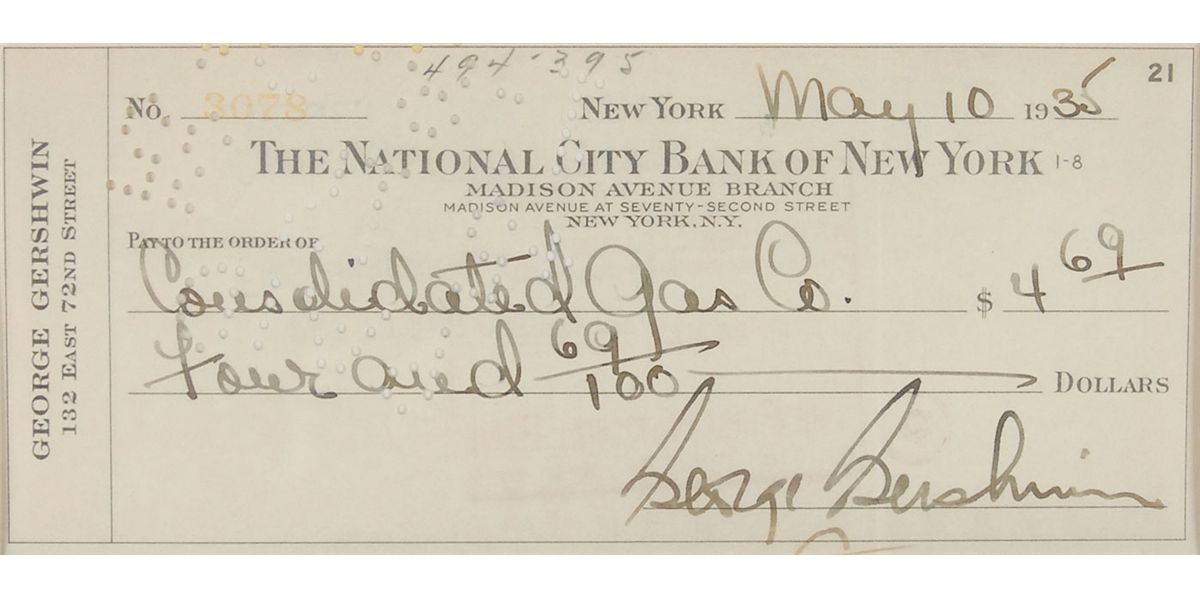 494-395
21
No. 3078
NEW YORK May 10 1935
THE NATIONAL CITY BANK OF NEW YORK 1-8
MADISON AVENUE BRANCH
MADISON AVENUE AT SEVENTY-SECOND STREET
NEW YORK, N.Y.
PAY TO THE ORDER OF
Consolidated Gas Co. $4 69
Four and 69/100 DOLLARS
George Gershwin
GEORGE GERSHWIN
132 EAST 72ND STREET